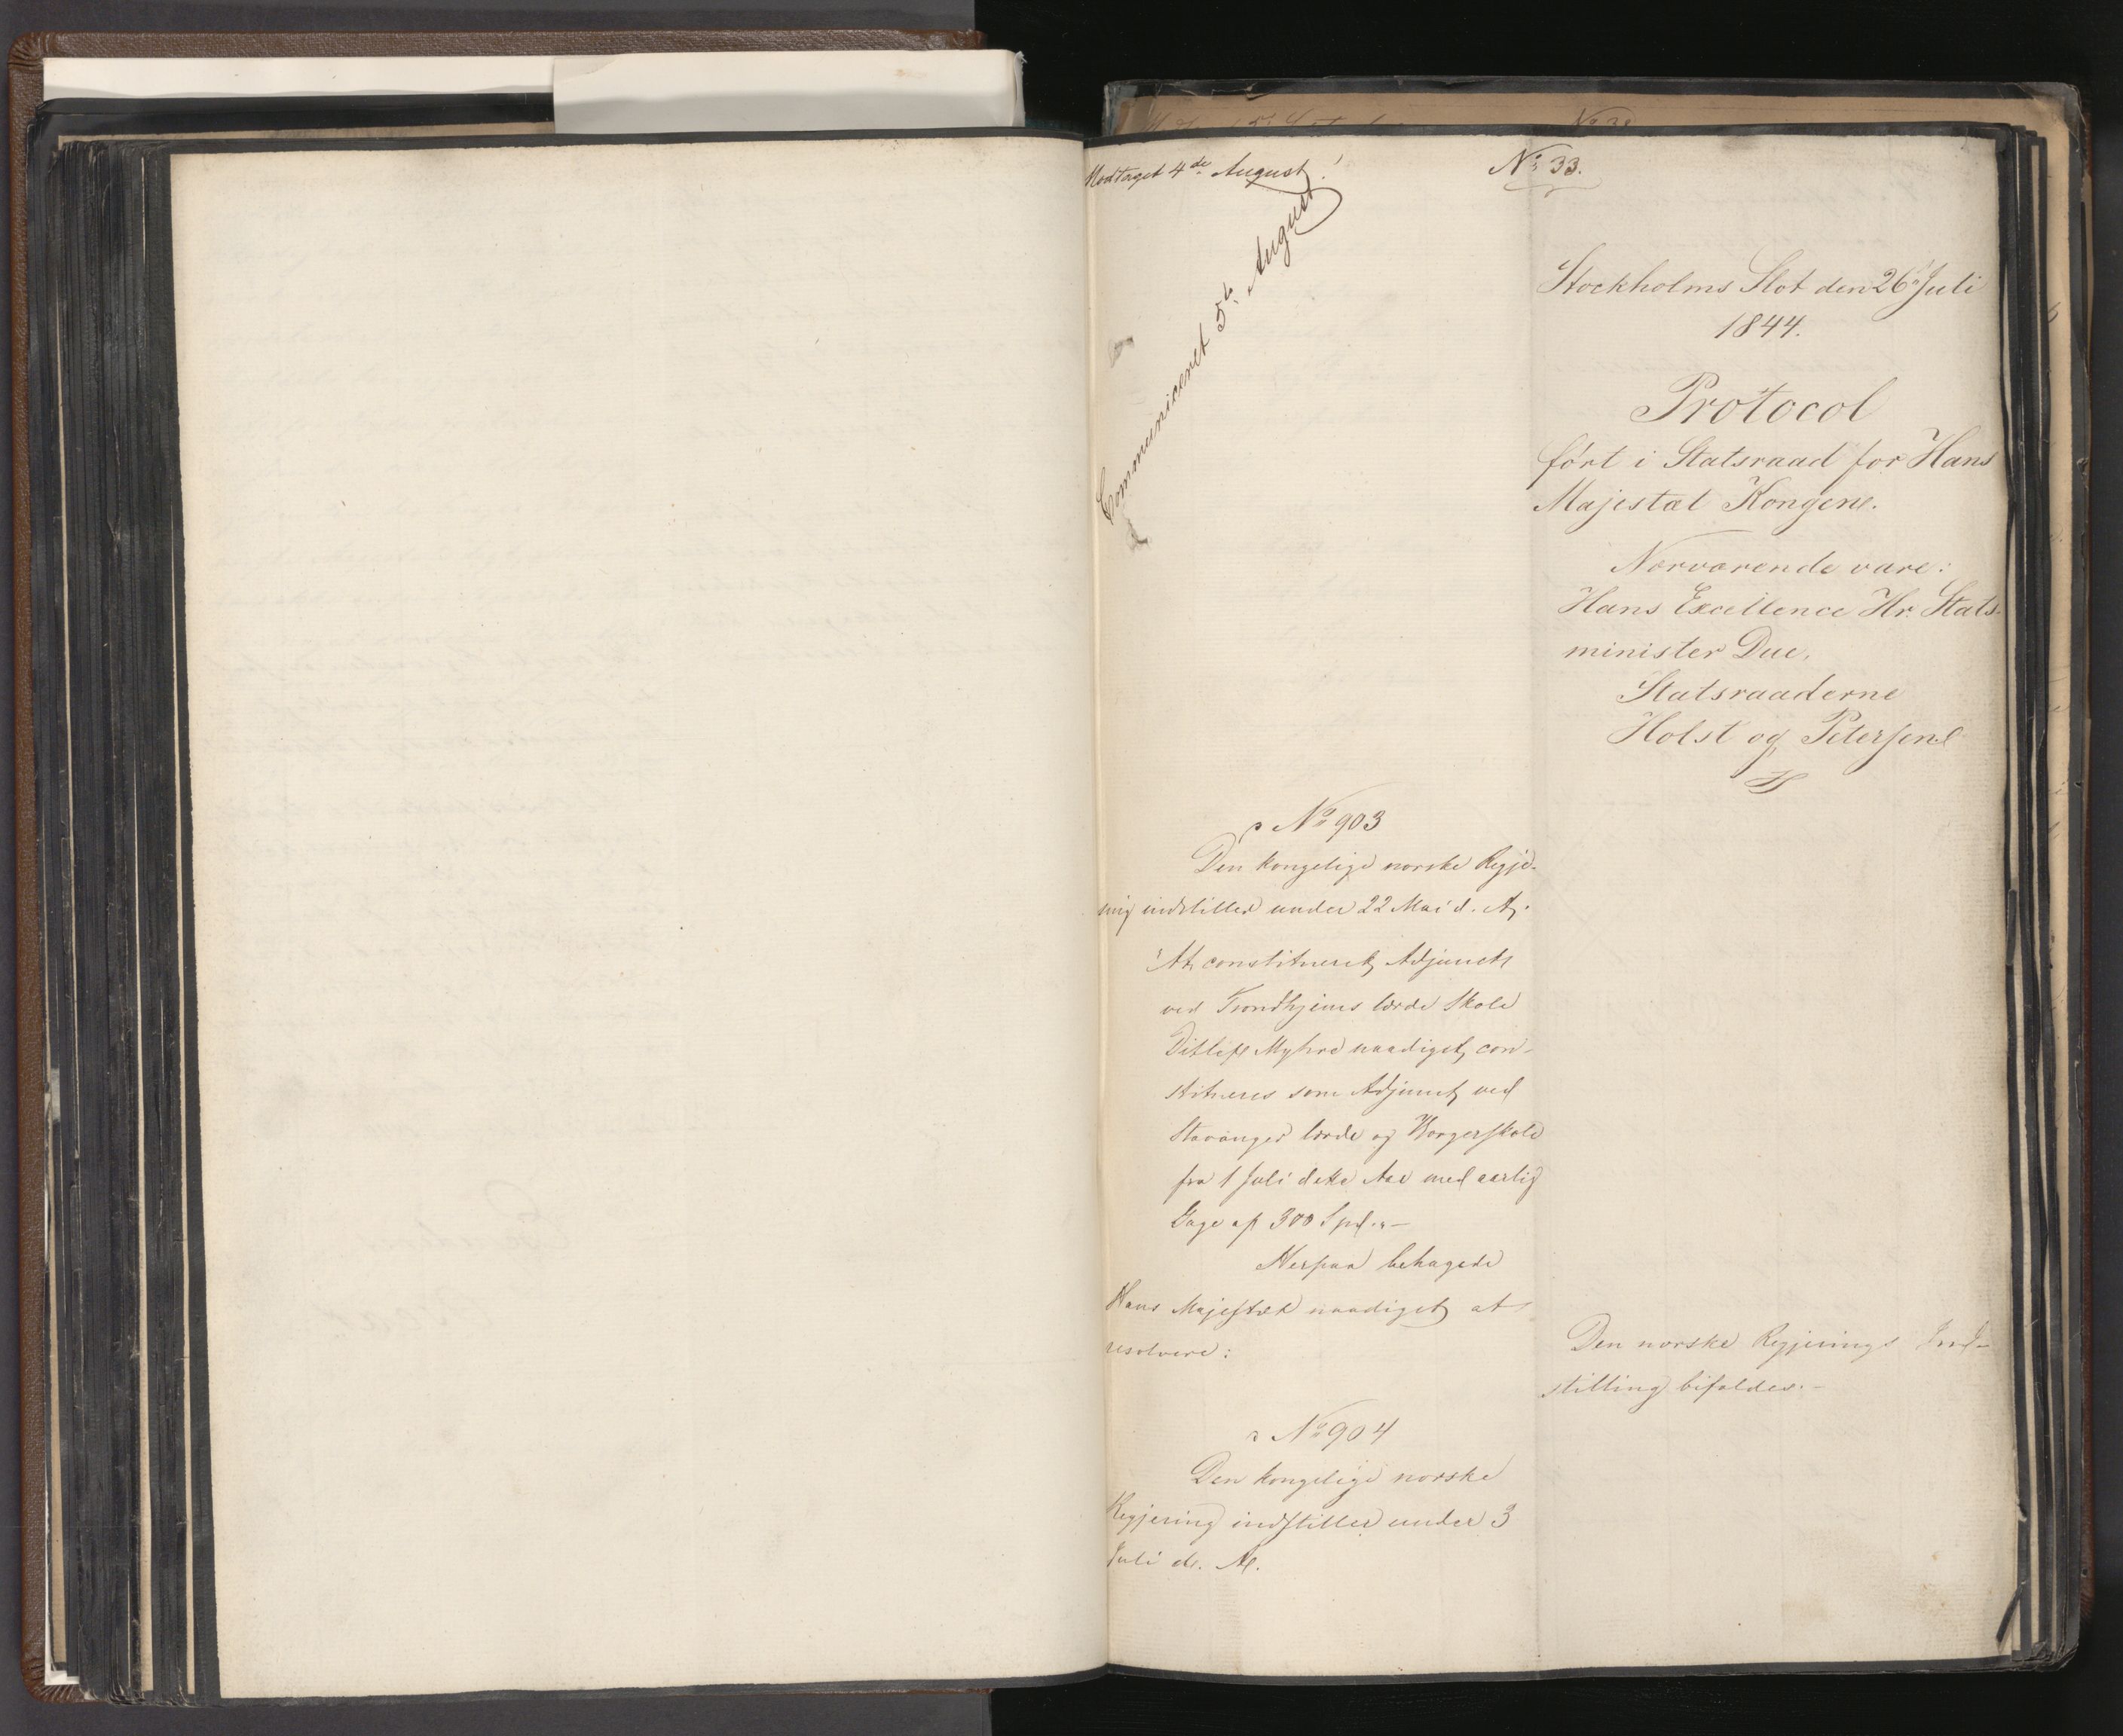 Modtaget 4de August!
No 33.
Communiceret 5te August
Stockholms Slot den 26 Juli
1844.
Protocol
ført i Statsraad for Hans
Majestæt Kongen.
Nærværende vare:
Hans Excellence Hr. Stats-
minister Due,
Statsraaderne
Holst og Petersen
No 903
Den kongelige norske Regje-
ring indstiller under 22 Mai d. A.
"At constitueret Adjunct
ved Trondhjems lærde Skole
Ditlef Myhre naadigst con-
stitueres som Adjunct ved
Stavanger lærde og Borgerskole
fra 1 Juli dette Aar med aarlig
Gage af 300 Spd."-
Herpaa behagede
Hans Majestæt naadigst at
resolvere:
Den norske Regjerings Ind-
stilling bifaldes.-
No 904
Den kongelige norske
Regjering indstiller under 3
Juli d. A.